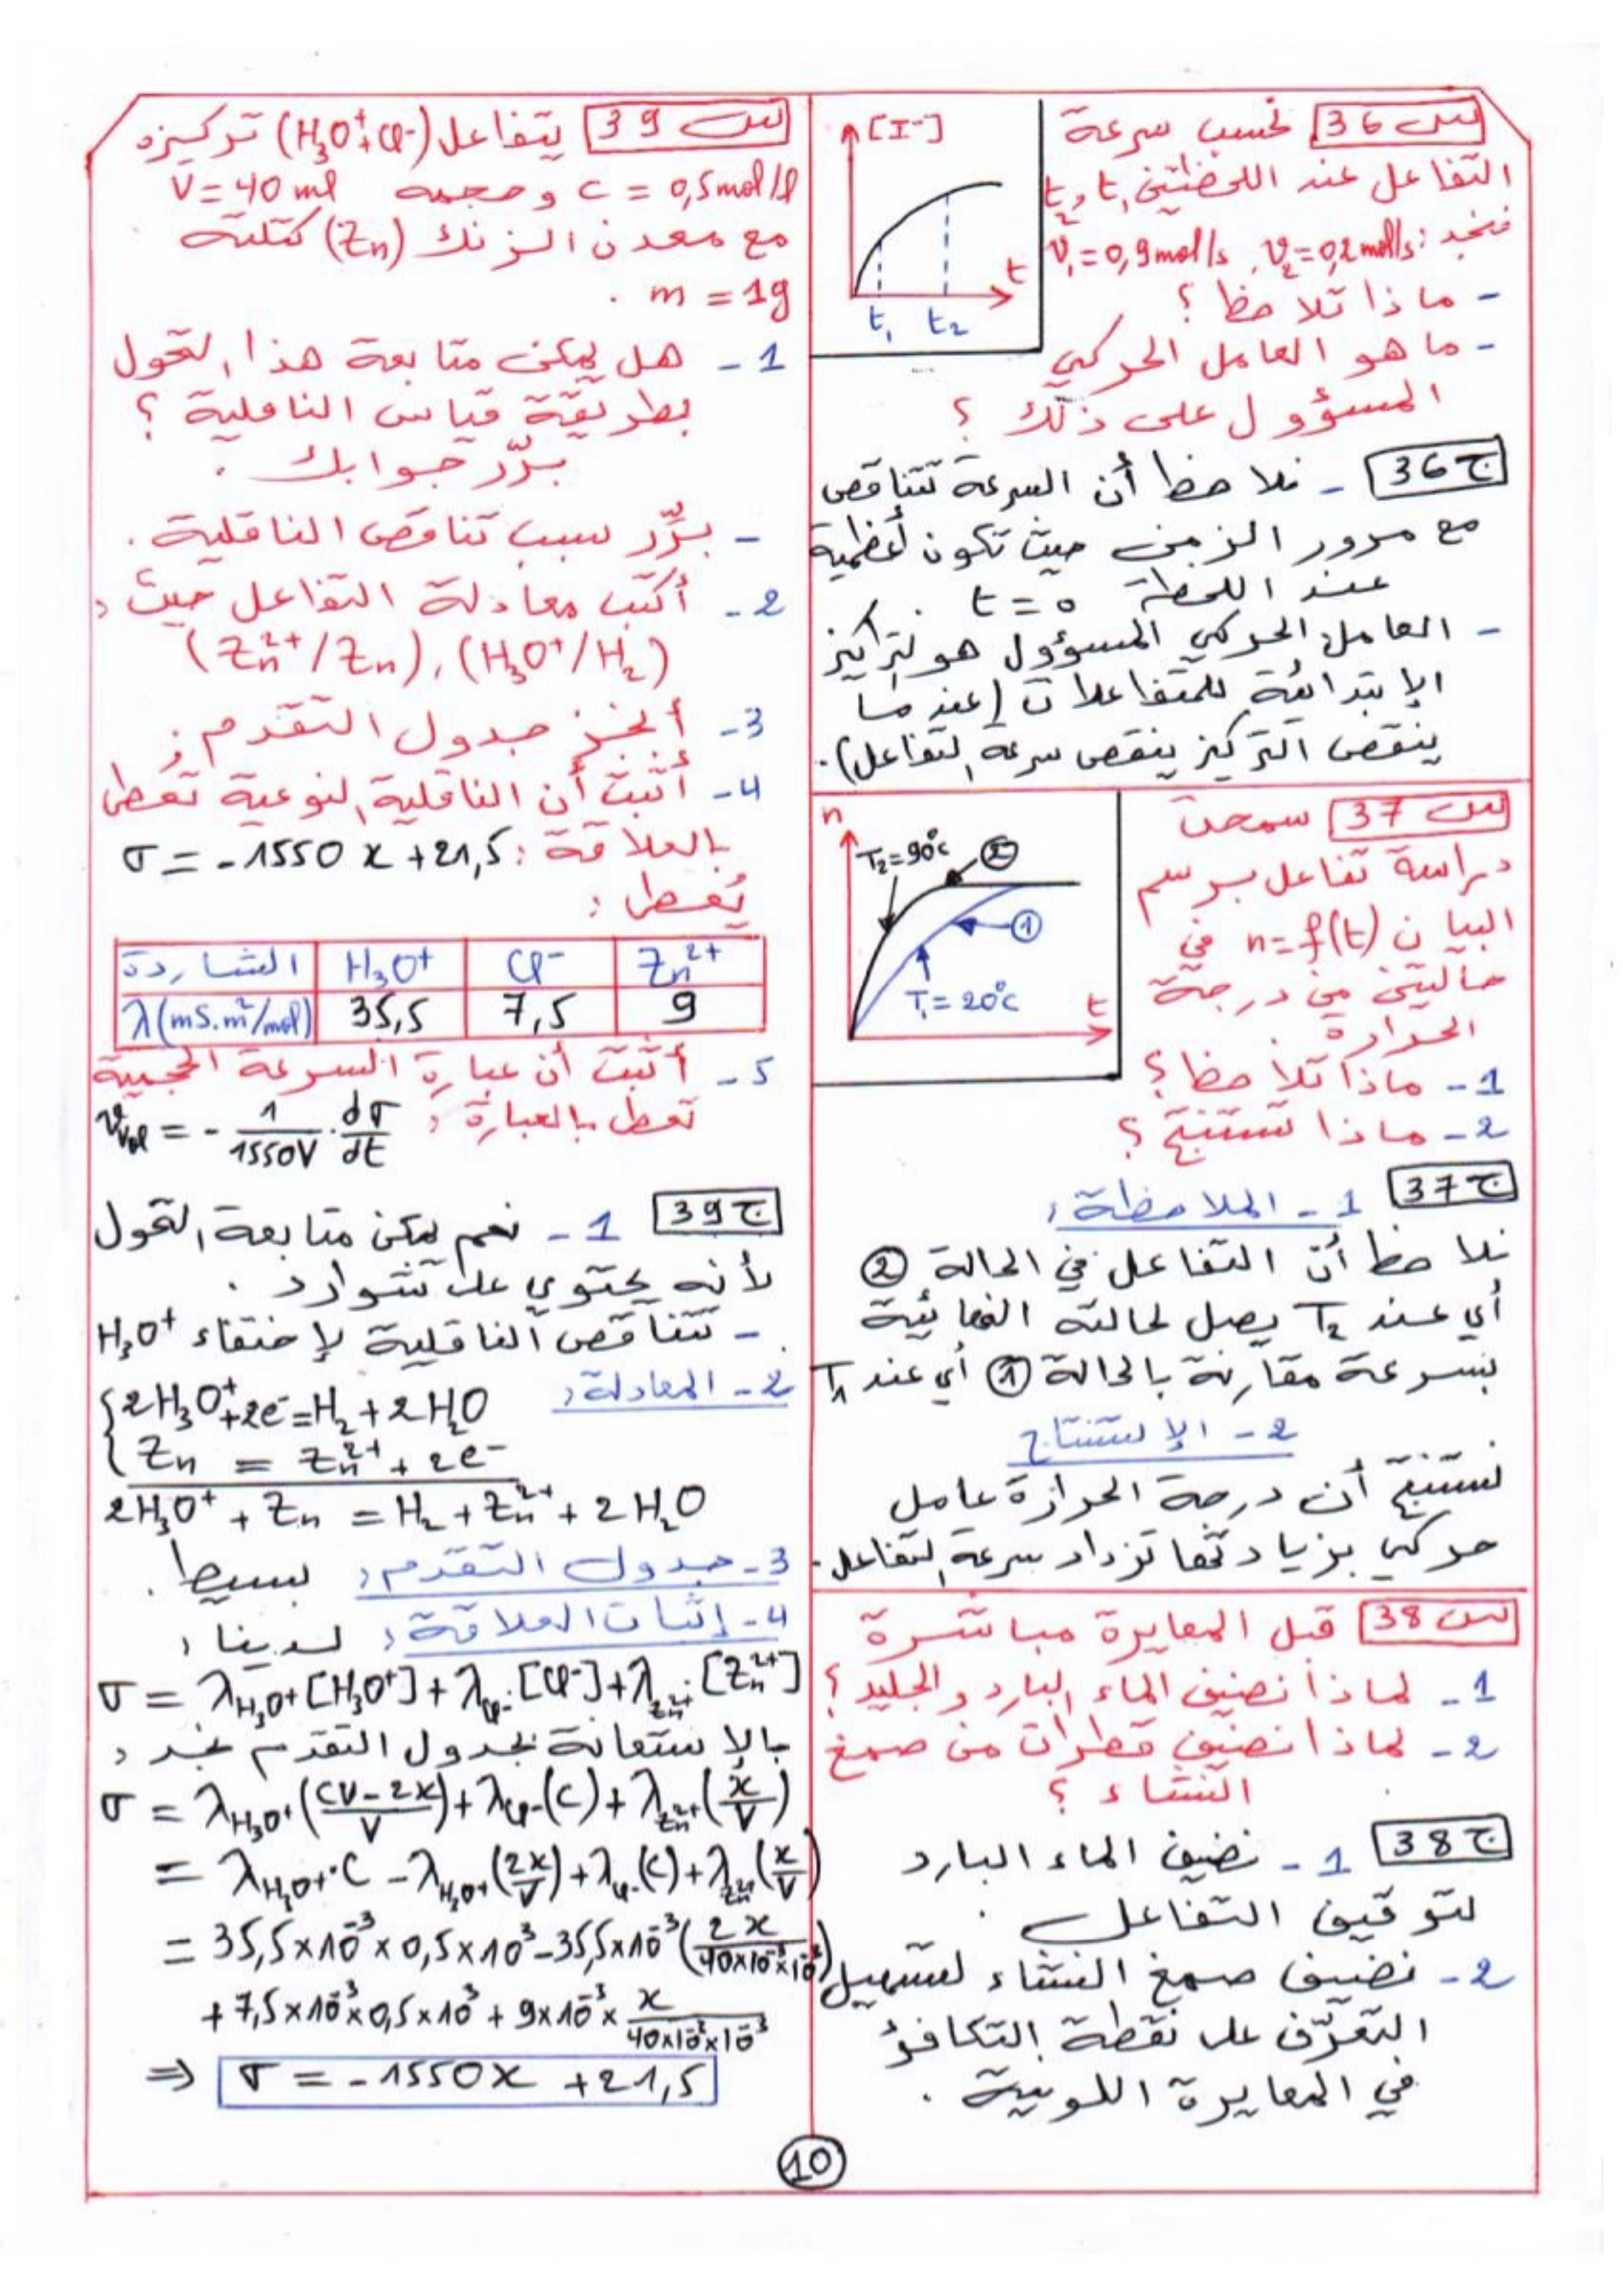 س 36 نحسب سرعة
التفاعل عند اللحظتين t₁ و t₂
فنجد: v₁ = 0,9 mol/s , v₂ = 0,2 mol/s
- ماذا تلاحظ ؟
- ما هو العامل الحركي
المسؤول على ذلك ؟
[I⁻]
t
t₁ t₂
ج 36 - نلاحظ أن السرعة تتناقص
مع مرور الزمن حيث تكون أعظمية
عند اللحظة t = 0 .
- العامل الحركي المسؤول هو التراكيز
الإبتدائية للمتفاعلات (عندما
ينقص التركيز ينقص سرعة التفاعل).
س 37 سمحت
دراسة تفاعل برسم
البيان n = f(t) في
حالتين من درجة
الحرارة .
1 - ماذا تلاحظ ؟
2 - ماذا تستنتج ؟
n
T₂ = 90°C ②
①
T₁ = 20°C t
ج 37 1 - الملاحظة :
نلاحظ أن التفاعل في الحالة ②
أي عند T₂ يصل لحالته النهائية
بسرعة مقارنة بالحالة ① أي عند T₁
2 - الإستنتاج
نستنتج أن درجة الحرارة عامل
حركي بزيادتها تزداد سرعة التفاعل .
س 38 قبل المعايرة مباشرة
1 - لماذا نضيف الماء البارد والجليد ؟
2 - لماذا نضيف قطرات من صمغ
النشاء ؟
ج 38 1 - نضيف الماء البارد
لتوقيف التفاعل .
2 - نضيف صمغ النشاء لتسهيل
التعرّف على نقطة التكافؤ
في المعايرة اللونية .
س 39 يتفاعل (H₃O⁺ + Cl⁻) تركيزه
c = 0,5 mol/l و حجمه V = 40 ml
مع معدن الزنك (Zn) كتلته
m = 1g .
1 - هل يمكن متابعة هذا التحول
بطريقة قياس الناقلية ؟
برّر جوابك .
- برّر سبب تناقص الناقلية .
2 - أكتب معادلة التفاعل حيث :
(Zn²⁺/Zn) , (H₃O⁺/H₂)
3 - أنجز جدول التقدم .
4 - أثبت أن الناقلية النوعية تعطى
بالعلاقة : σ = -1550 x + 21,5
يُعطى :
الشاردة H₃O⁺ Cl⁻ Zn²⁺
λ(mS.m²/mol) 35,5 7,5 9
5 - أثبت أن عبارة السرعة الحجمية
تعطى بالعبارة : v_vol = - 1/1550V . dσ/dt
ج 39 1 - نعم يمكن متابعة التحول
لأنه يحتوي على شوارد .
- تتناقص الناقلية لإختفاء H₃O⁺
2 - المعادلة :
{ 2H₃O⁺ + 2e⁻ = H₂ + 2H₂O
Zn = Zn²⁺ + 2e⁻
2H₃O⁺ + Zn = H₂ + Zn²⁺ + 2H₂O
3 - جدول التقدم : بسيط .
4 - إثبات العلاقة : لدينا :
σ = λH₃O⁺[H₃O⁺] + λCl⁻.[Cl⁻] + λZn²⁺.[Zn²⁺]
بالإستعانة بجدول التقدم نجد :
σ = λH₃O⁺((CV - 2x)/V) + λCl⁻(C) + λZn²⁺(x/V)
= λH₃O⁺.C - λH₃O⁺(2x/V) + λCl⁻(C) + λZn²⁺(x/V)
= 35,5×10⁻³×0,5×10³ - 35,5×10⁻³(2x/40×10⁻³×10⁻³)
+ 7,5×10⁻³×0,5×10³ + 9×10⁻³× x/40×10⁻³×10⁻³
⇒ σ = -1550x + 21,5
10